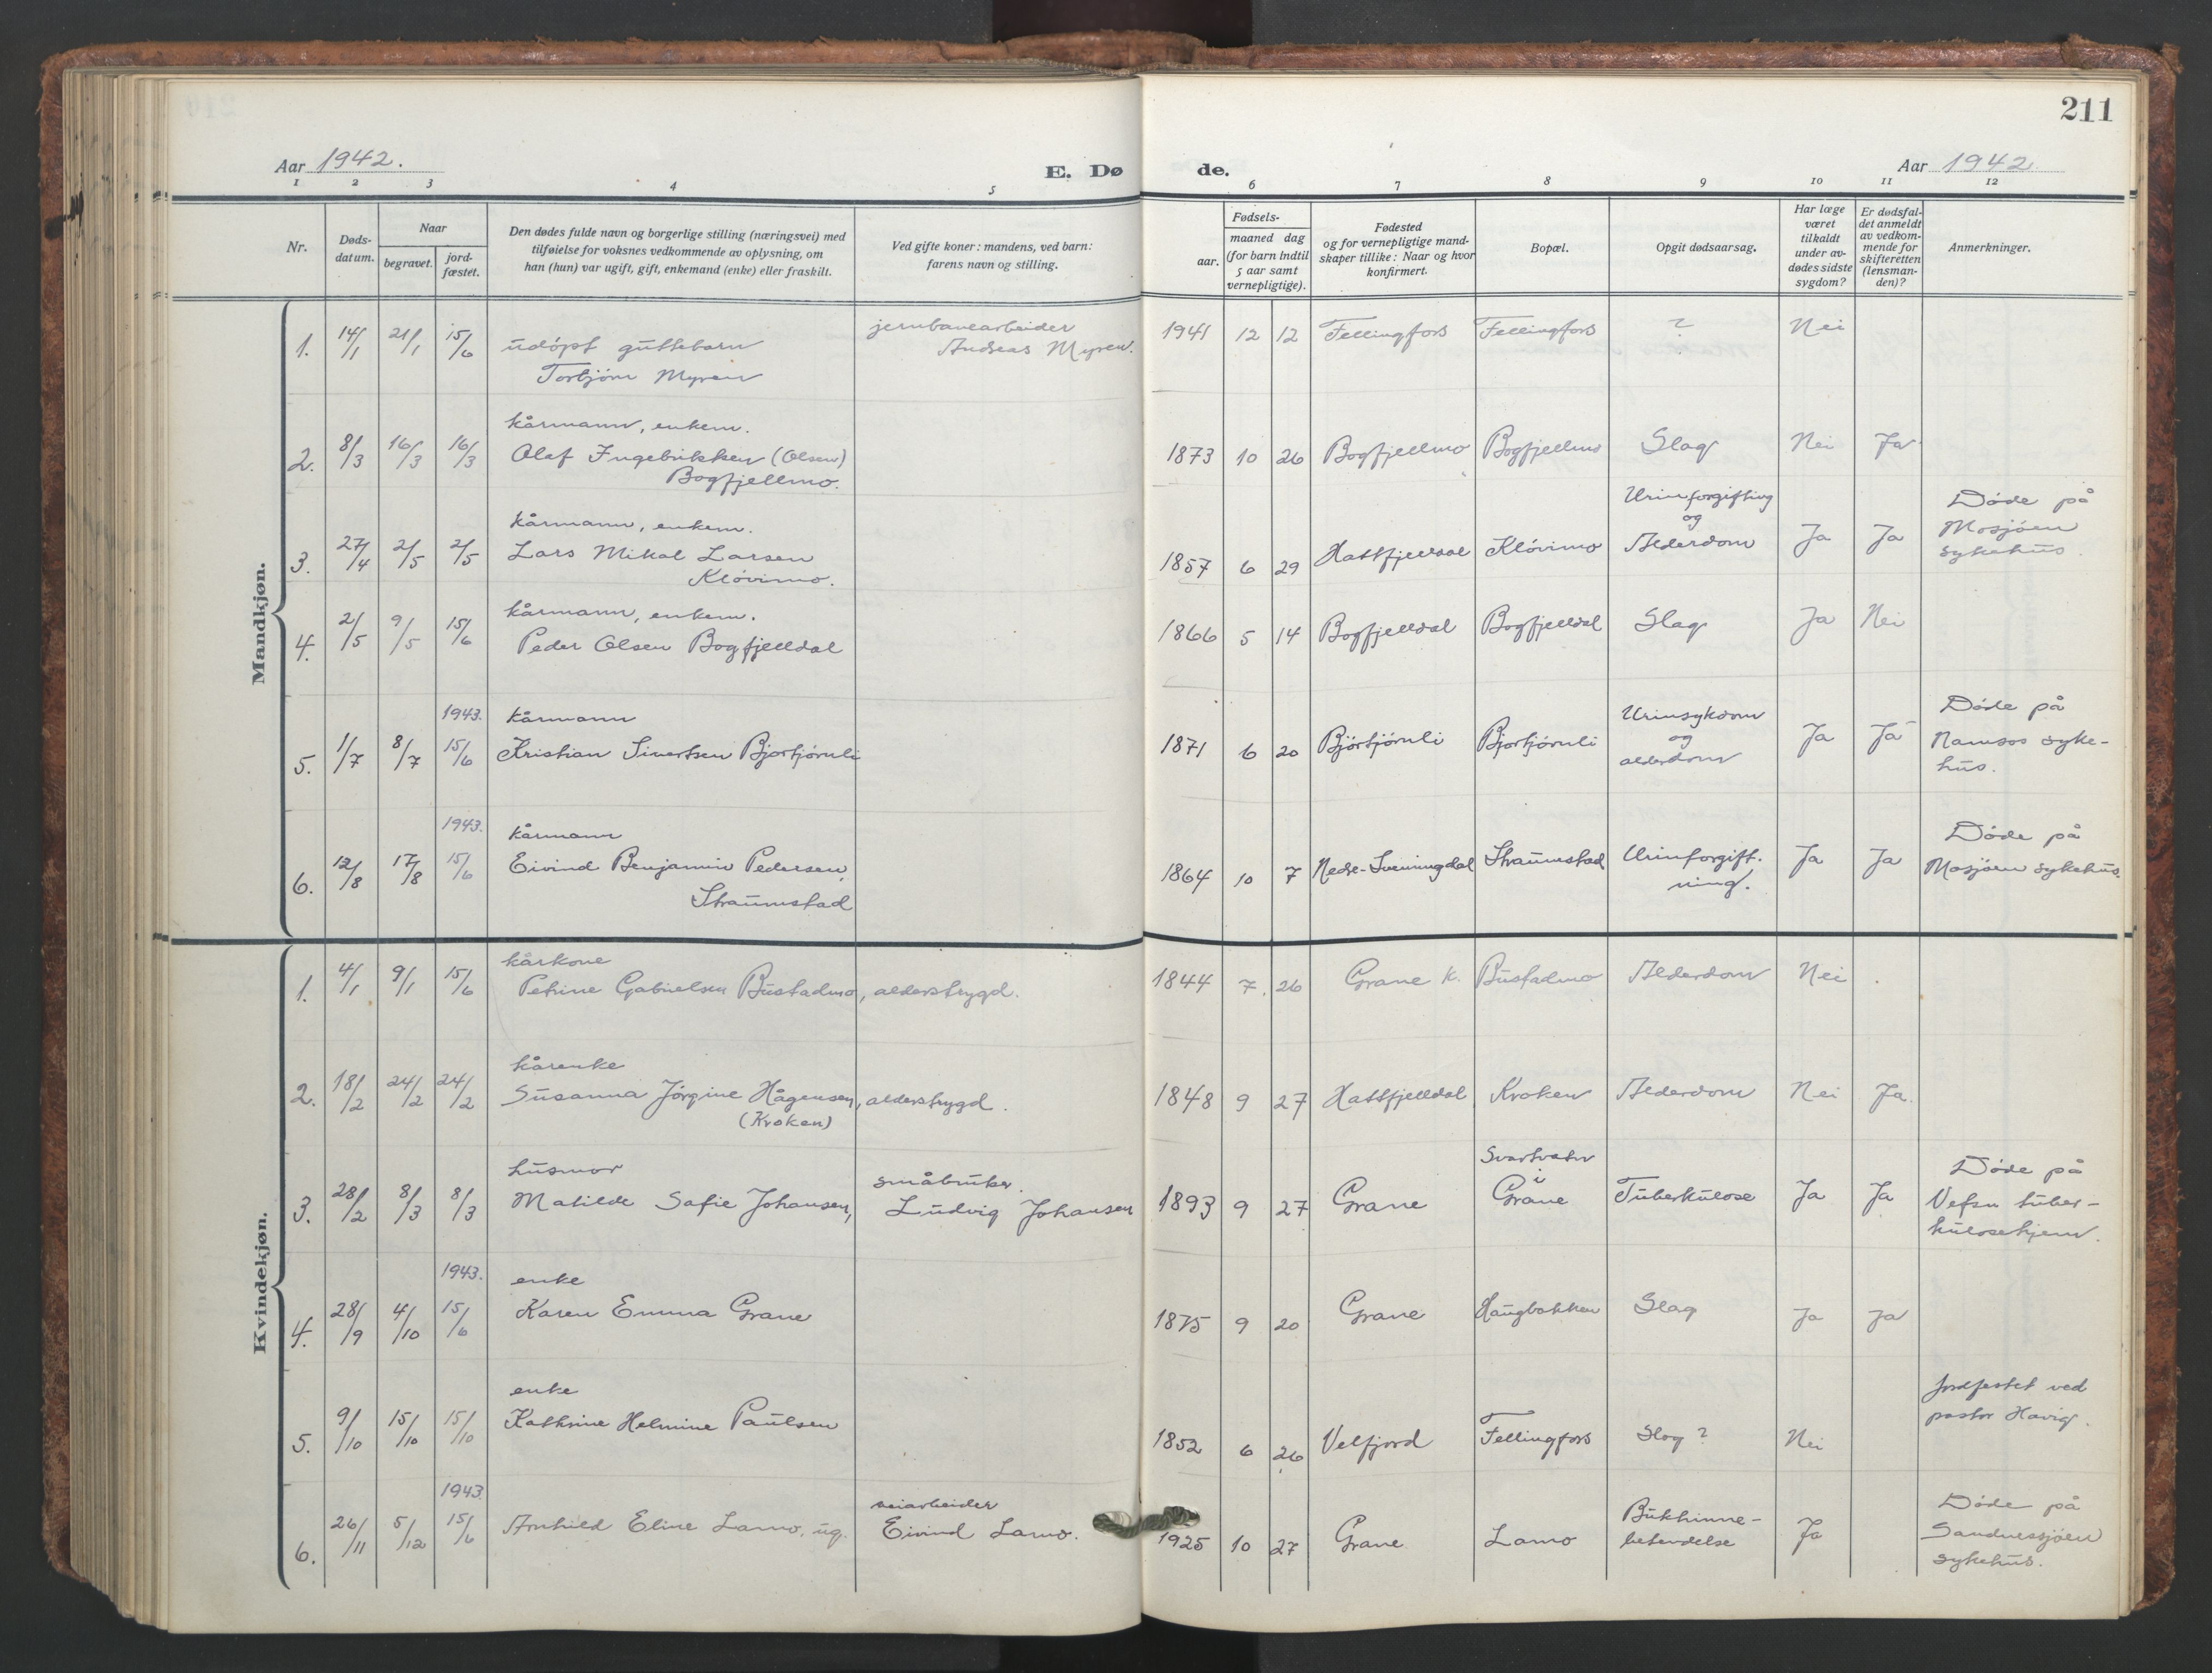 211
Aar 1942.
E. Dø
de.
Aar 1942
1 2 3 4 5 6 7 8 9 10 11 12
Nr.
Døds-
datum.
Naar
begravet.
jord-
fæstet.
Den dødes fulde navn og borgerlige stilling (næringsvei) med
tilføielse for voksnes vedkommende av oplysning, om
han (hun) var ugift, gift, enkemand (enke) eller fraskilt.
Ved gifte koner: mandens, ved barn:
farens navn og stilling.
Fødsels-
aar.
maaned dag
(for barn indtil
5 aar samt
vernepligtige).
Fødested
og for vernepligtige mand-
skaper tillike: Naar og hvor
konfirmert.
Bopæl.
Opgit dødsaarsag.
Har læge
været
tilkaldt
under av-
dødes sidste
sygdom?
Er dødsfal-
det anmeldt
av vedkom-
mende for
skifteretten
(lensman-
den)?
Anmerkninger.
Mandkjøn.
1. 14/1 21/1 15/6 udöpt guttebarn
Torbjörn Myren
jernbanearbeider
Andreas Myren.
1941 12 12 Fellingfors Fellingfors ? Nei
kårmann, enkem.
2. 8/3 16/3 16/3 Olaf Ingebrikksen (Olsen)
Bogfjellmo.
1873 10 26 Bogfjellmo Bogfjellmo Slag Nei Ja
kårmann, enkem.
3. 27/4 2/5 2/5 Lars Mikal Larsen
Klövimo.
1857 6 29 Hattfjelldal Klövimo
Urinforgiftning
og
Alderdom
Ja Ja
Döde på
Mosjöen
sykehus.
kårmann, enkem.
4. 2/5 9/5 15/6 Peder Olsen Bogfjelldal
1866 5 14 Bogfjelldal Bogfjelldal Slag Ja Nei
1943. kårmann
5. 1/7 8/7 15/6 Kristian Sivertsen Bjortjörnli
1871 6 20 Björtjörnli Bjortjörnli
Urinsykdom
og
alderdom
Ja Ja
Döde på
Namsos syke-
hus.
1943. kårmann
6. 12/8 17/8 15/6 Eivind Benjamin Pedersen,
Straumstad
1864 10 7 Nedre-Svenningdal Straumstad
Urinforgift-
ning.
Ja Ja
Döde på
Mosjöen sykehus.
Kvindekjøn.
kårkone
1. 4/1 9/1 15/6 Petrine Gabrielsen Bustadmo, alderstrygd.
1844 7. 26 Grane k. Bustadmo Alderdom Nei
kårenke
2. 18/2 24/2 24/2 Susanna Jörgine Hågensen, alderstrygd.
(Kroken)
1848 9 27 Hattfjelldal Kroken Alderdom Nei Ja.
husmor
3. 28/2 8/3 8/3 Matilde Safie Johansen,
småbruker.
Ludvig Johansen
1893 9 27 Grane
Svartvatn
i
Grane
Tuberkulose Ja Ja
Döde på
Vefsn tuber-
kulosehjem.
1943. enke
4. 28/9 4/10 15/6 Karen Emma Grane
1875 9 20 Grane Haugbakken Slag Ja Ja
enke
5. 9/10 15/10 15/10 Kathrine Helmine Paulsen
1852 6 26 Velfjord Fellingfors Slag ? Nei
Jordfestet ved
pastor Havig.
1943
6. 26/11 5/12 15/6 Arnhild Eline Lamo, ug.
veiarbeider
Eivind Lamo.
1925 10 27 Grane Lamo
Bukhinne-
betendelse
Ja
Döde på
Sandnessjöen
sykehus.